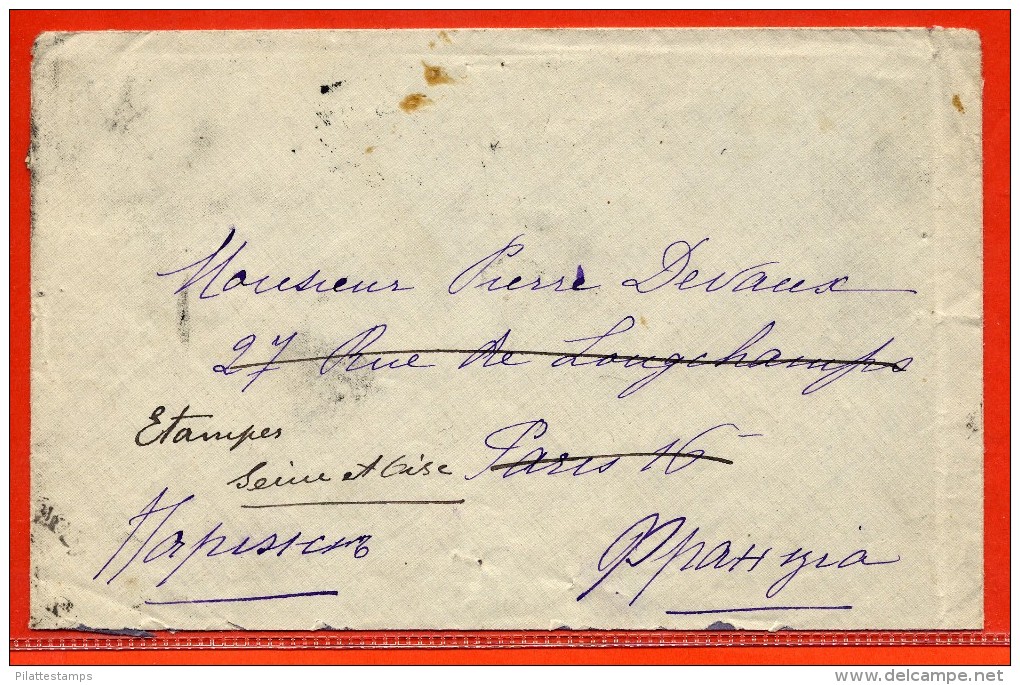 Monsieur Pierre Devaux
27 Rue de Longchamps
Paris 16
Etampes
Seine et Oise
Парижъ
Франція
Pilattestamps
www.delcampe.net